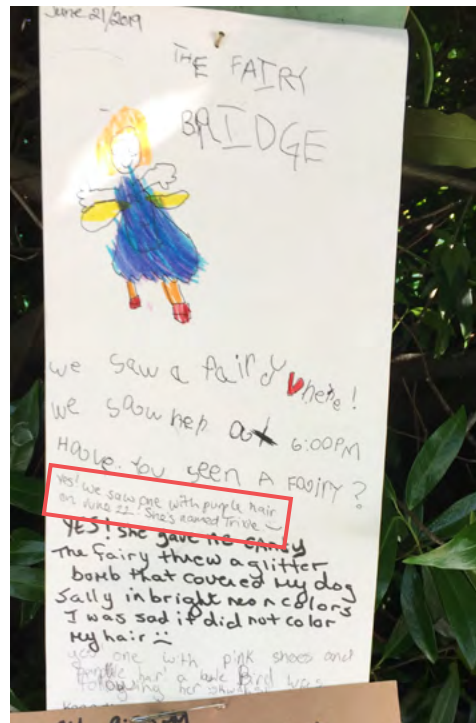 June 21/2019
THE FAIRY
BRIDGE
we saw a fairy here!
we saw her at 6:00PM
Have you seen A Fairy?
Yes! We saw one with purple hair
on June 22. She's named Trixie
YES! She gave me candy
The fairy threw a glitter
bomb that covered my dog
Sally in bright neon colors
I was sad it did not color
My hair
yes one with pink shoes and
purple hair a Bird was
following her